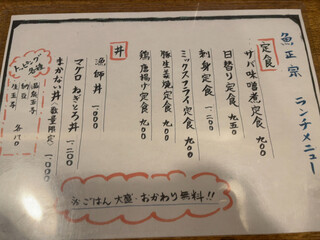 魚正宗 ランチメニュー
定食
サバ味噌煮定食 九〇〇
日替り定食 九五〇
刺身定食 一二〇〇
ミックスフライ定食 九〇〇
豚生姜焼定食 九〇〇
鶏唐揚げ定食 九〇〇
丼
漁師丼 一〇〇〇
マグロねぎとろ丼 一二〇〇
まかない丼(数量限定) 一〇〇〇
トッピング各種
温泉玉子
納豆
生玉子
各八〇
※ごはん大盛・おかわり無料!!